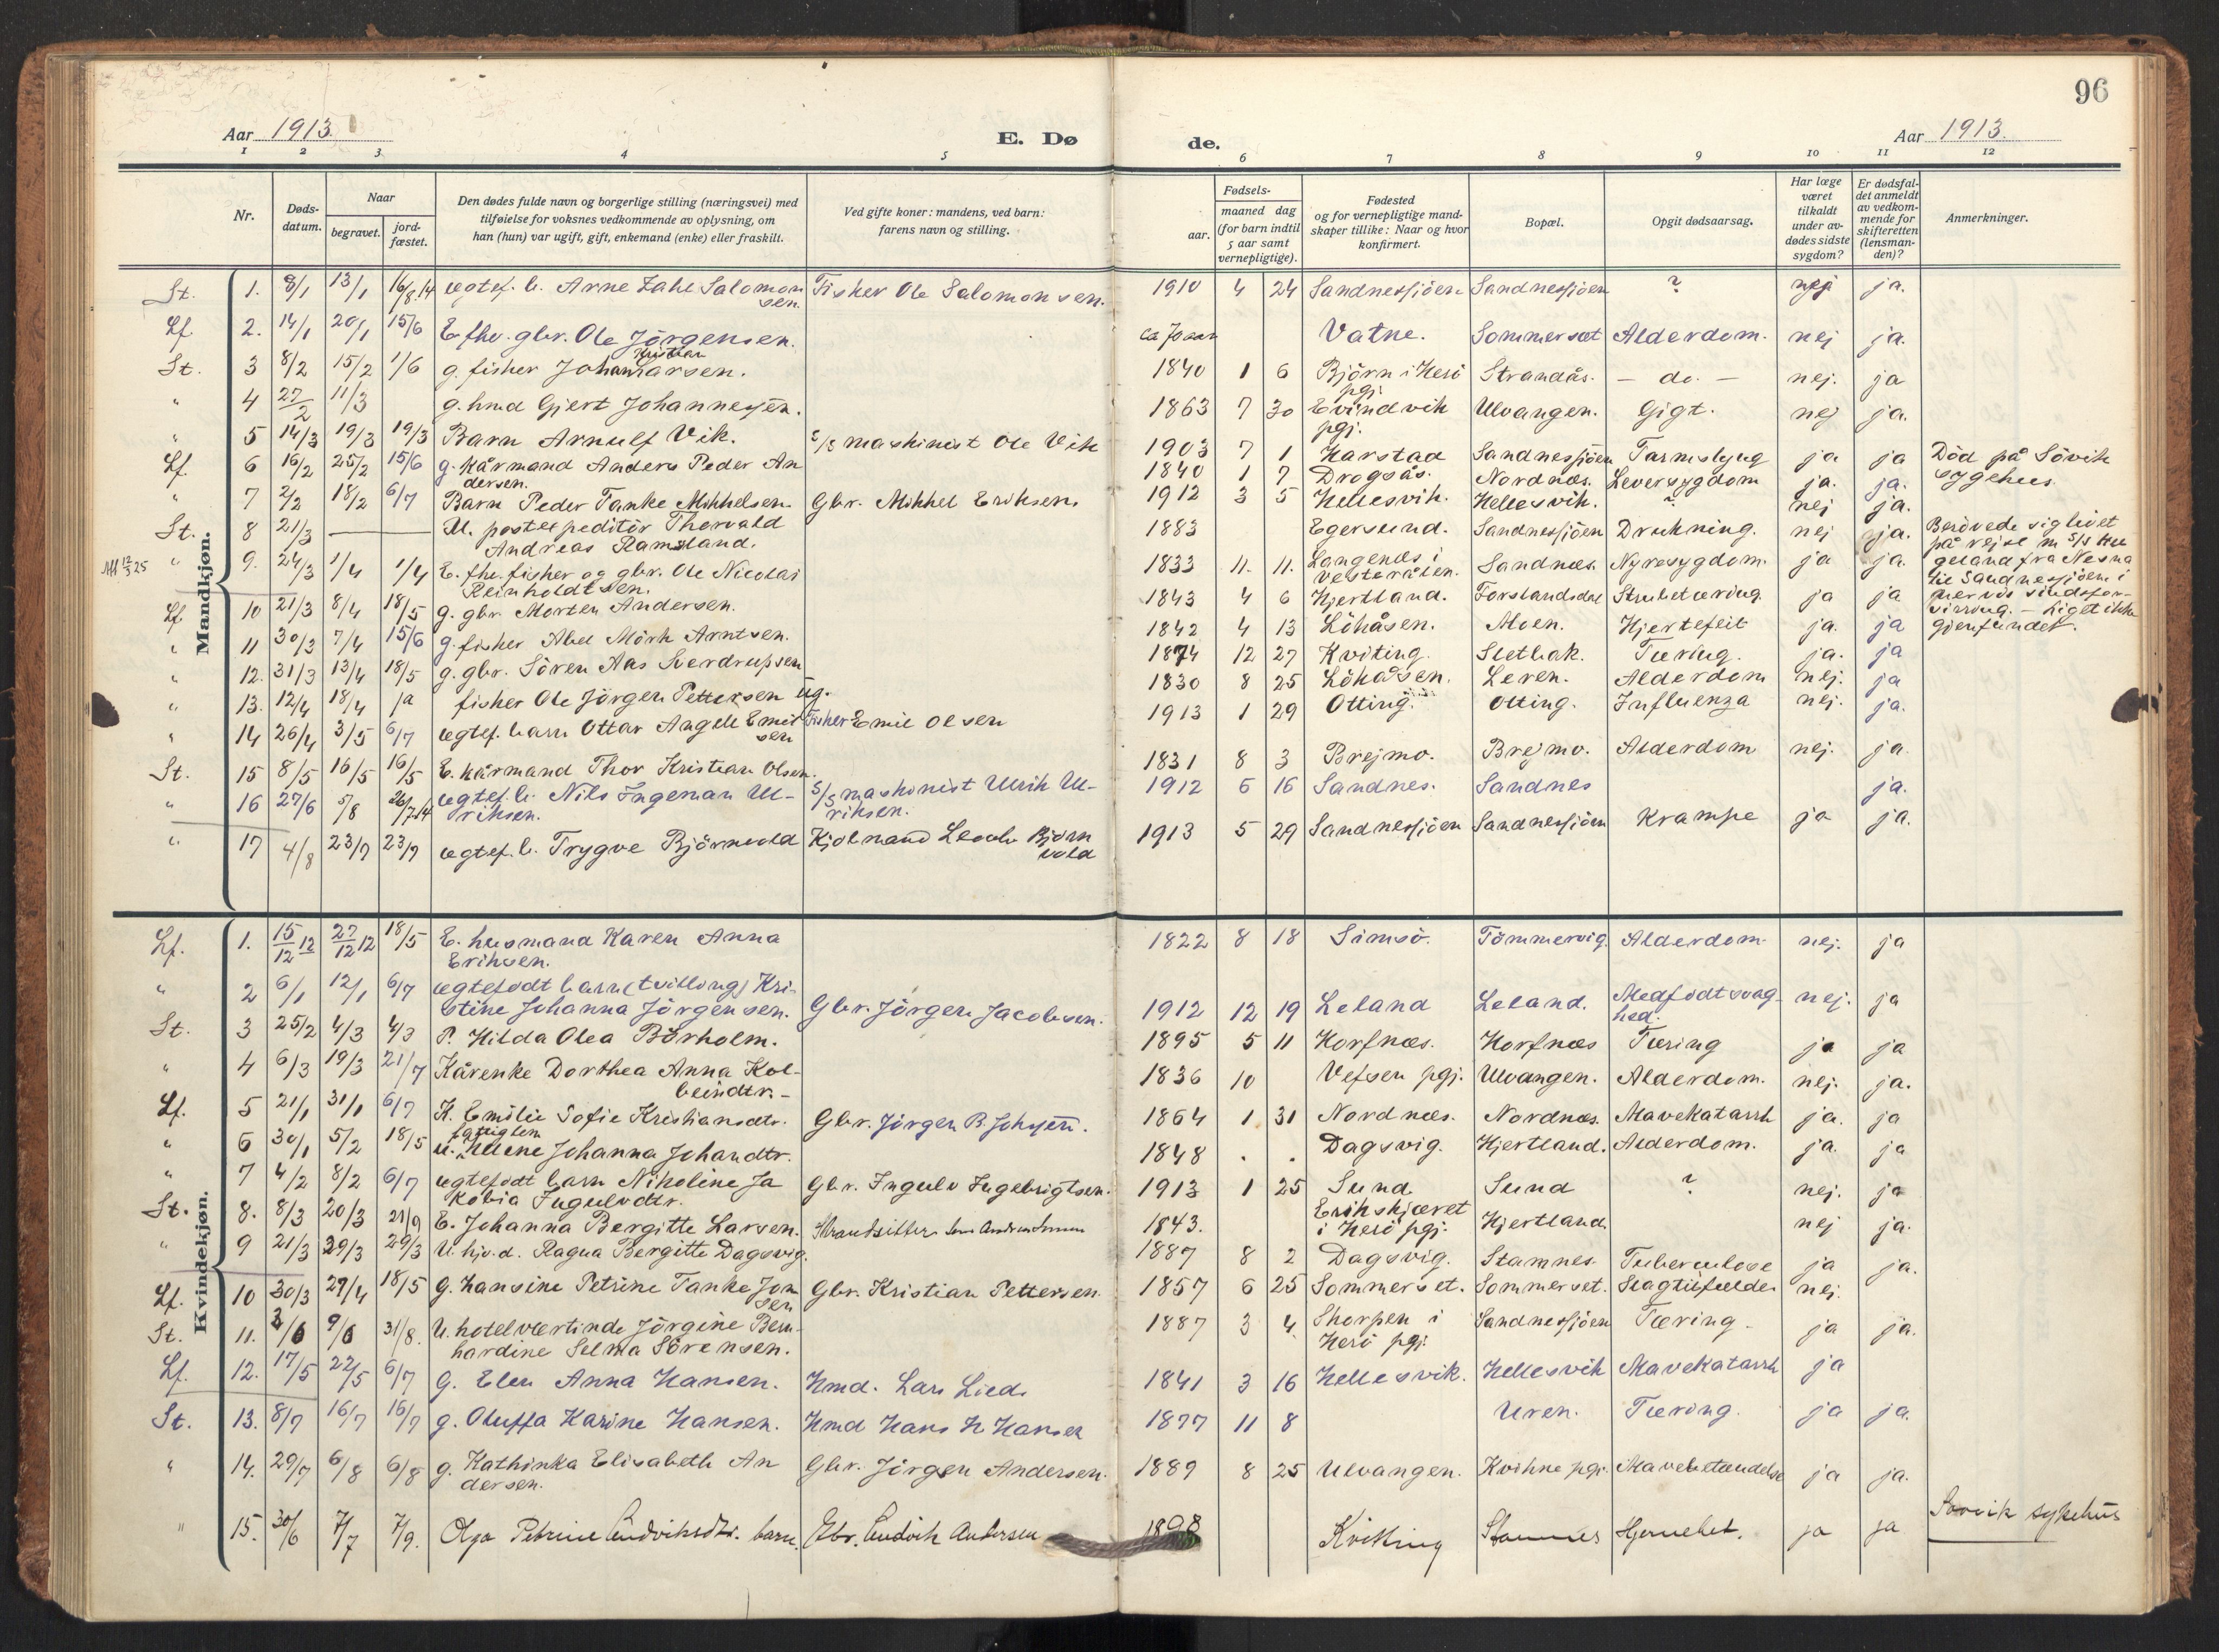 96
Aar 1913.
E. Dø
de.
Aar 1913.
1 2 3 4 5 6 7 8 9 10 11 12
Nr.
Døds-
datum.
Naar
begravet.
jord-
fæstet.
Den dødes fulde navn og borgerlige stilling (næringsvei) med
tilføielse for voksnes vedkommende av oplysning, om
han (hun) var ugift, gift, enkemand (enke) eller fraskilt.
Ved gifte koner: mandens, ved barn:
farens navn og stilling.
Fødsels-
aar.
maaned dag
(for barn indtil
5 aar samt
vernepligtige).
Fødested
og for vernepligtige mand-
skaper tillike: Naar og hvor
konfirmert.
Bopæl.
Opgit dødsaarsag.
Har læge
været
tilkaldt
under av-
dødes sidste
sygdom?
Er dødsfal-
det anmeldt
av vedkom-
mende for
skifteretten
(lensman-
den)?
Anmerkninger.
Mandkjøn.
St. 1. 8/1 13/1 16/8 14 egtef. b. Arne Zahl Salomon Fisker Ole Salomonsen. 1910 4 24 Sandnessjöen Sandnessjöen ? nej ja.
sen.
Lf. 2. 14/1 20/1 15/6 E. fhv. gbr. Ole Jörgensen. ca 70 aar Vatne. Sommerset Alderdom. nej ja.
Kristian
St. 3 8/2 15/2 1/6 g. fisker Johan Larsen. 1840 1 6 Björn i Herö Strandås. - do. - nej. ja
pgj.
" 4 27/2 11/3 g. hmd Gjert Johannessen. 1863 7 30 Evindvik Ulvangen. Gigt. nej ja.
pgj.
" 5 14/3 19/3 19/3 Barn Arnulf Vik. s/s maskinist Ole Vik 1903 7 1 Harstad Sandnessjöen Tarmslyng ja ja Död på Sövik
sygehus.
Lf. 6 16/2 25/2 15/6 g. kårmand Anders Peder An 1840 1 7 Drogsås. Nordnæs. Leversygdom ja. ja.
dersen.
" 7 2/2 18/2 6/7 Barn Peder Tanke Mikkelsen. Gbr. Mikkel Eriksen. 1912 3 5 Hellesvik. Hellesvik. ? nej ja.
St. 8 21/3 — U. postexpeditör Thorvald 1883 Egersund. Sandnessjöen Drukning. nej ja. Berövede sig livet
Andreas Ramsland.
på rejse m s/s Hu
geland fra Nesna
til Sandnessjöen i
nervös sindsfor-
virring. – Liget ikke
gjenfundet.
" 9. 24/3 1/4 1/4 E. fhv. fisker og gbr. Ole Nicolai 1833 11. 11. Langenes i Sandnæs. Nyresygdom. ja ja.
Reinholdtsen. Vesterålen.
Lf. 10 21/3 8/4 18/5 g. gbr. Morten Andersen. 1843 4 6 Hjertland. Forslandsdal Strubetæring. ja ja
" 11 30/3 7/4 15/6 g. fisker Abel Mörk Arntsen. 1842 4 13 Löhåsen. Moen. Hjertefeil ja. ja
" 12. 31/3 13/4 18/5 g. gbr. Sören Aas Sverdrupsen 1874 12 27 Kviting. Sletbak. Tæring. ja. ja
" 13. 12/4 18/4 ja fisker Ole Jörgen Pettersen ug. 1830 8 25 Löhåsen. Leren. Alderdom nej. ja
" 14 26/4 3/5 6/7 egtef. barn Ottar Angell Emil Fisker Emil Olsen 1913 1 29 Otting. Otting. Influenza nej. ja.
sen
St. 15 8/5 16/5 16/5 E. kårmand Thor Kristian Olsen. 1831 8 3 Brejmo. Brejmo. Alderdom nej. ja.
" 16 27/6 5/8 26/7 14 egtef. b. Nils Ingeman Ul- s/s maskinist Ulrik Ul- 1912 6 16 Sandnes. Sandnes ja.
riksen. riksen.
" 17 4/8 23/9 23/9 egtef. b. Trygve Björnvold Kjolmand Bjorn 1913 5 29 Sandnessjöen Sandnessjöen Krampe ja ja.
vold
Kvindekjøn.
Lf. 1. 15/12 12 27/12 12 18/5 E. husmand Karen Anna 1822 8 18 Simsö. Tömmervig. Alderdom. nej. ja
Eriksen.
" 2 6/1 12/1 6/7 egtefödt barn (tvilling) Kri-
stine Johanna Jörgensen. Gbr. Jörgen Jacobsen. 1912 12 19 Leland Leland. Medfödt svag- nej. ja
hed.
St. 3 25/2 4/3 4/3 P. Hilda Olea Börholm. 1895 5 11 Horfnæs. Horfnæs Tæring ja ja
" 4 6/3 19/3 21/7 Kårenke Dorthea Anna Kol- 1836 10 Vefsen pgj. Ulvangen. Alderdom. nej. ja.
beindtr.
Lf. 5 21/1 31/1 6/7 K. Emilie Sofie Kristiansdtr. Gbr. Jörgen B. Johnsen. 1864 1 31 Nordnæs. Nordnæs. Mavekatarrh ja. ja
fattiglem
" 6 30/1 5/2 18/5 u. Helene Johanna Johandtr. 1848 . . Dagsvig. Hjertland. Alderdom. ja. ja
" 7 4/2 8/2 6/7 egtefödt barn Nikoline Ja Gbr. Ingulv Ingebrigtsen. 1913 1 25 Sund. Sund ? nej. ja
kobia Ingulvdtr.
St. 8. 8/3 20/3 21/9 E. Johanna Bergitte Larsen. Strandsitter 1843. Erikskjæret Hjertland. nej ja.
i Herö pgj.
" 9 21/3 29/3 29/3 U. hjv. d. Ragna Bergitte Dagsvig. 1887 8 2 Dagsvig. Stamnes Tuberculose ja ja.
Lf. 10 30/3 29/4 18/5 g. Hansine Petrine Tanke Jon Gbr. Kristian Pettersen. 1857 6 25 Sommerset. Sommerset. Slagtilfælde. nej.
sen
St. 11. 3/6 9/6 31/8. U. hotelvertinde Jörgine Bern- 1887 3 4 Skorpen i Sandnessjöen Tæring. ja ja.
hardine Selma Sörensen. Herö pgj.
Lf. 12. 17/5 22/5 6/7 g. Elen Anna Hansen. Hmd. Lars Lied. 1841 3 16 Hellesvik. Hellesvik Mavekatarrh ja
St. 13. 8/7 16/7 16/7 g. Oluffa Karine Hansen. Hmd Hans H Hansen 1877 11 8 Uren. Tæring. ja ja.
" 14. 29/7 6/8 6/8 g. Kathinka Elisabeth An Gbr. Jörgen Andersen. 1889 8 25 Ulvangen. Kvihne pgj. Mavebetændelse ja ja.
dersen.
" 15. 30/6 7/7 7/9. Olga Petrine Ludviksdtr. barn. Gbr. Ludvik Andersen 1898 Kvitting Stamnes Hjernebet. ja ja Sovvik sykehus